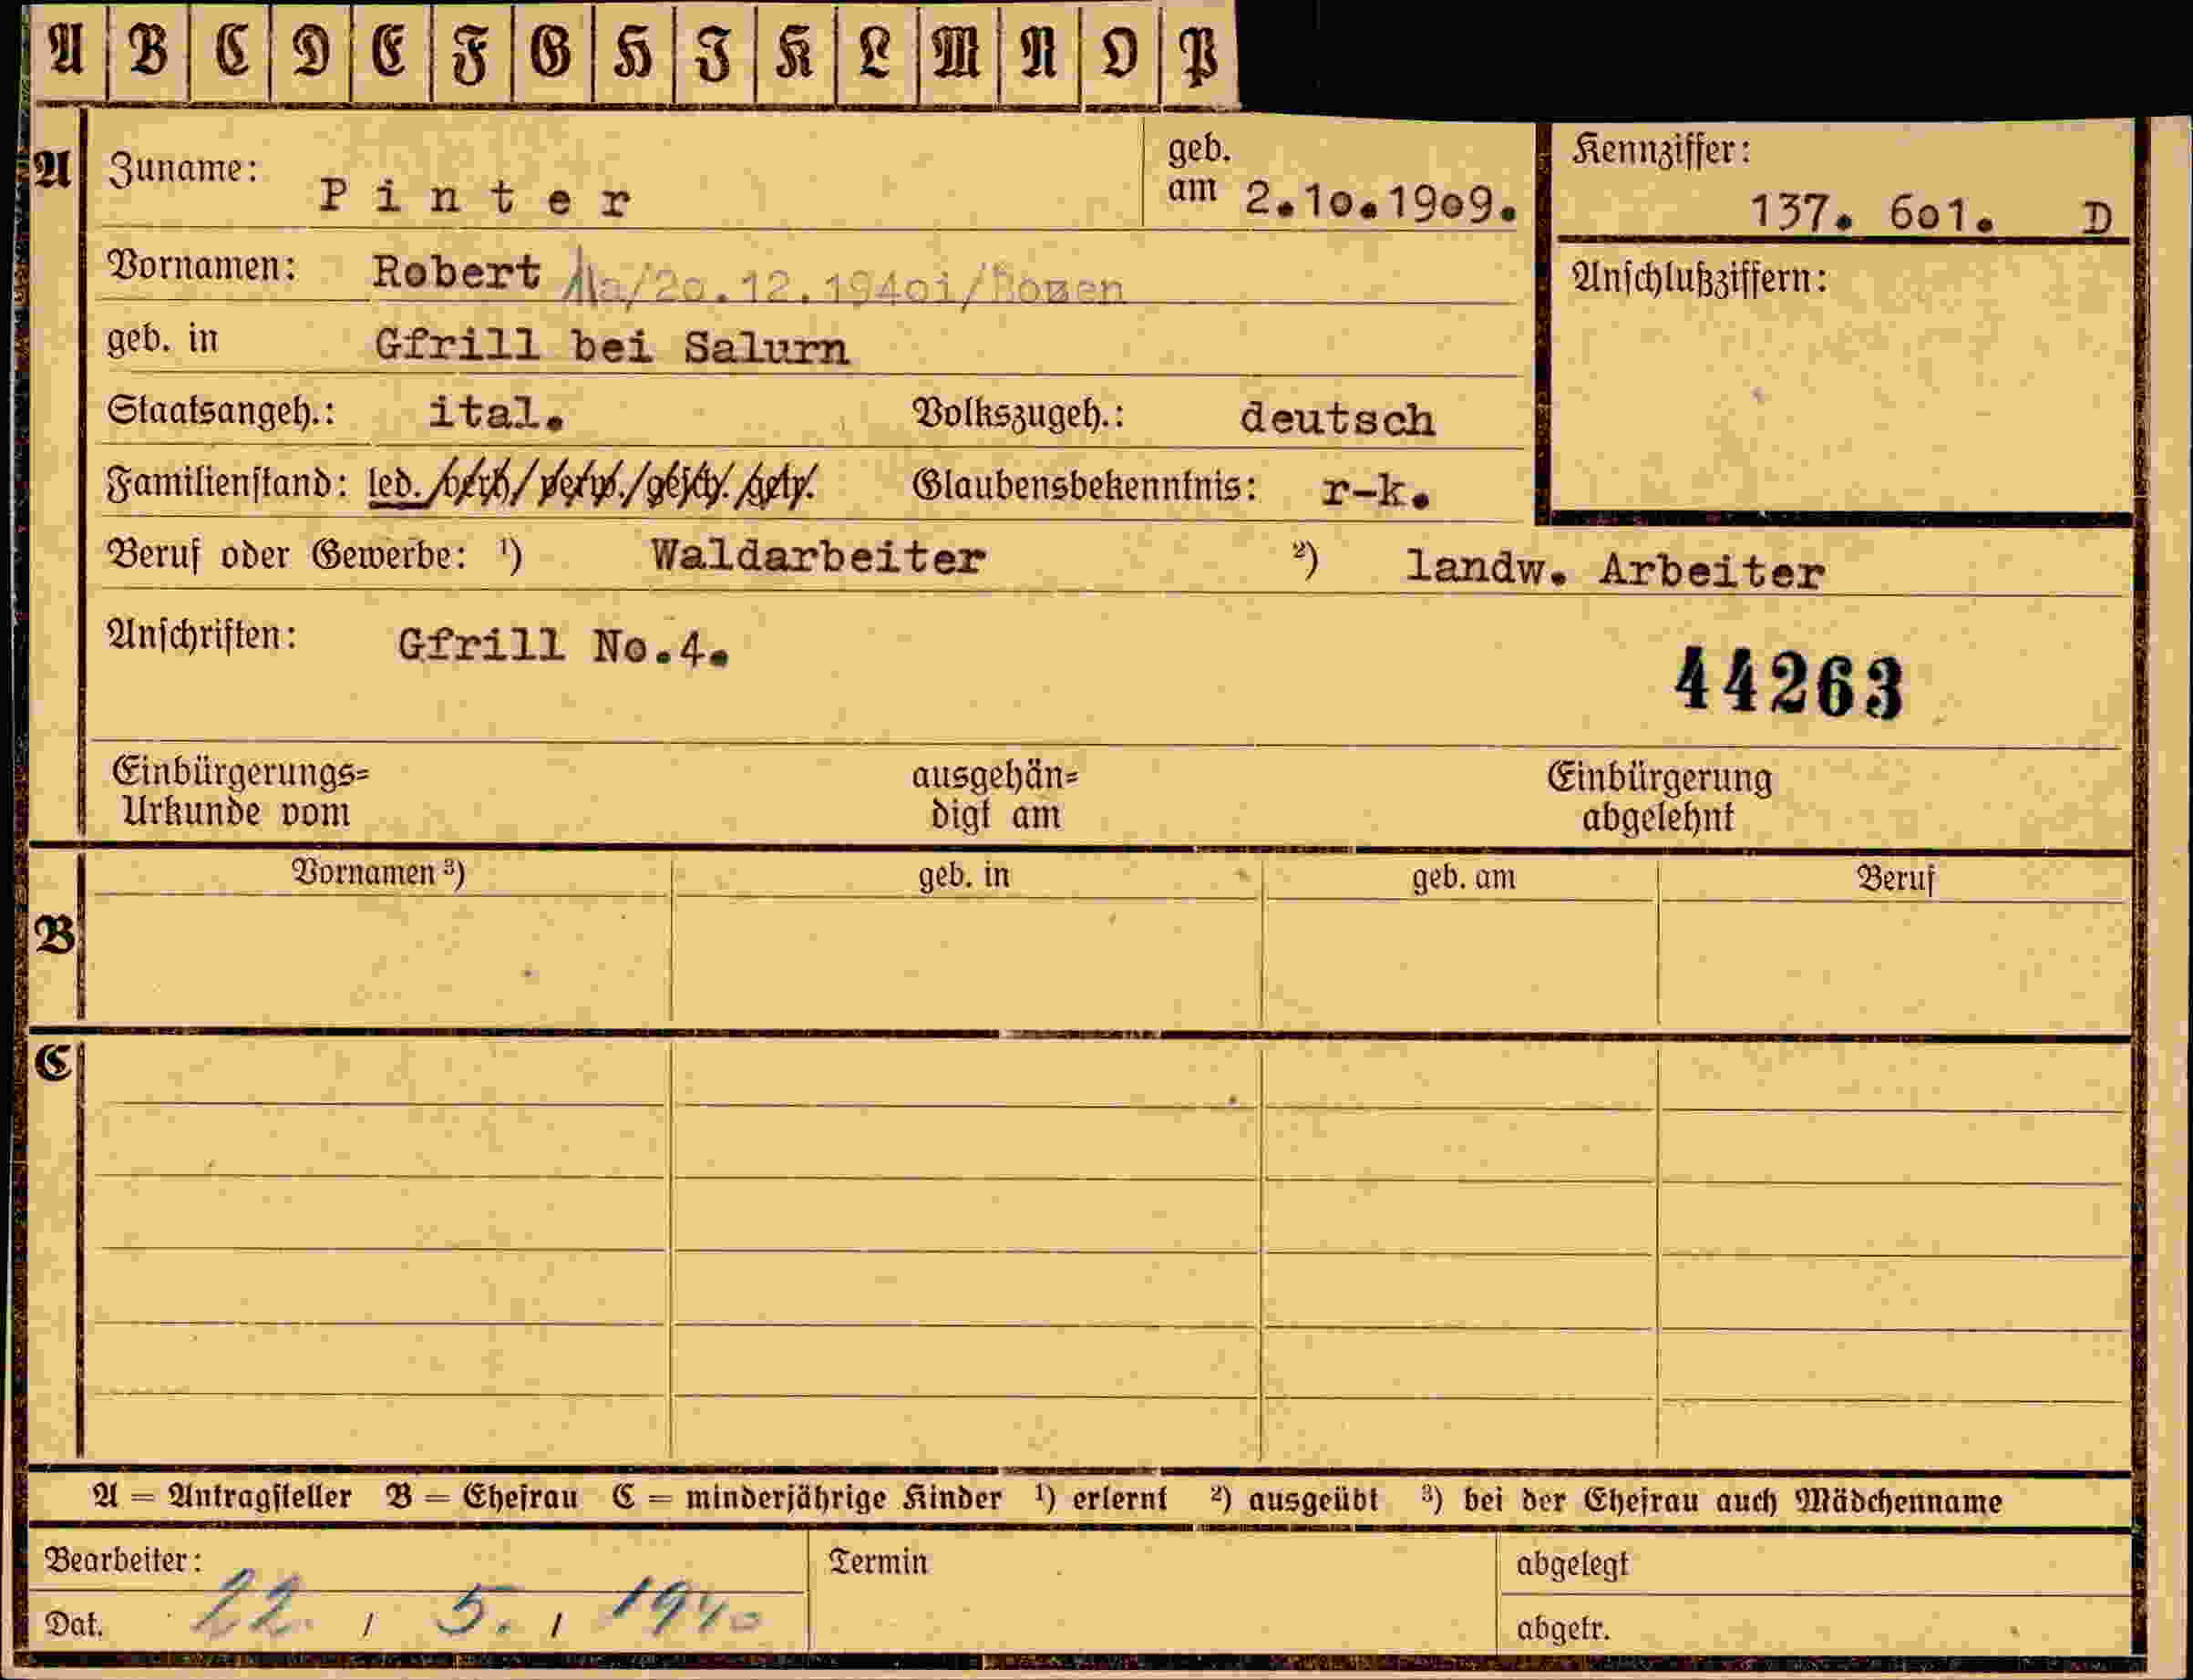 A B C D E F G H I K L M N O P
A
Zuname: Pinter
geb. am 2.10.1909.
Kennziffer:
137. 601. D
Vornamen: Robert /20.12.1940i/Bozen
Anschlußziffern:
geb. in Gfrill bei Salurn
Staatsangeh.: ital. Volkszugeh.: deutsch
Familienstand: led./verh/verw./gesch./getr. Glaubensbekenntnis: r-k.
Beruf oder Gewerbe: ¹) Waldarbeiter ²) landw. Arbeiter
Anschriften: Gfrill No.4.
44263
Einbürgerungs=
Urkunde vom
ausgehän=
digt am
Einbürgerung
abgelehnt
B
Vornamen ³) geb. in geb. am Beruf
C
A = Antragsteller B = Ehefrau C = minderjährige Kinder ¹) erlernt ²) ausgeübt ³) bei der Ehefrau auch Mädchenname
Bearbeiter:
Termin
abgelegt
Dat. 22. / 5. / 1940
abgetr.